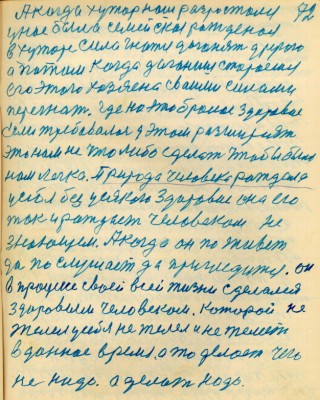 72
А когда хутор нам разростали
у нас была семейская рожденая
в хуторе сила гнати догонят другого
а потом когда догоним стараемся
его этого хозяена своими силами
перегнат. Где но это бралос здоровае
если требовалос у этом розширят
это нам не что либо сделат чтобы было
нам легка. Природа человека рождала
у себя без усякого здоровие она его
так и рождает человеком не
знающем. А когда он поживет
да послушает да пригледится. он
в процессе своей всей жизни сделался
здоровым человеком. которой не
желел усебя не желел и не желеет
в данное время. а то делает чего
не надо. а делат надо.